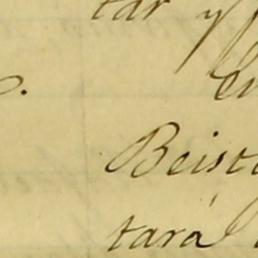 tar y
En
Beist
tará